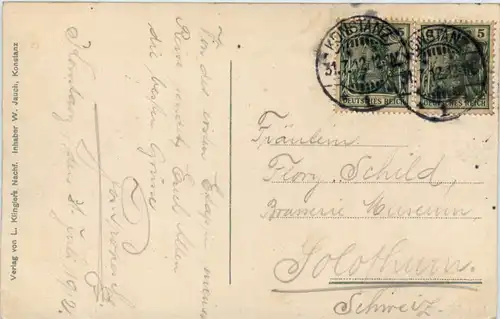 Verlag von L. Klinglers Nachf. Inhaber W. Jauch, Konstanz
Konstanz, den 31. Juli 1912.
Von der ersten Etappe meiner
Reise sendet Euch Allen
die besten Grüsse
KONSTANZ
31.7.12.
KONSTANZ
5
5
DEUTSCHES REICH
DEUTSCHES REICH
Fräulein
Flory Schild,
Brasserie Museum
Solothurn.
Schweiz.